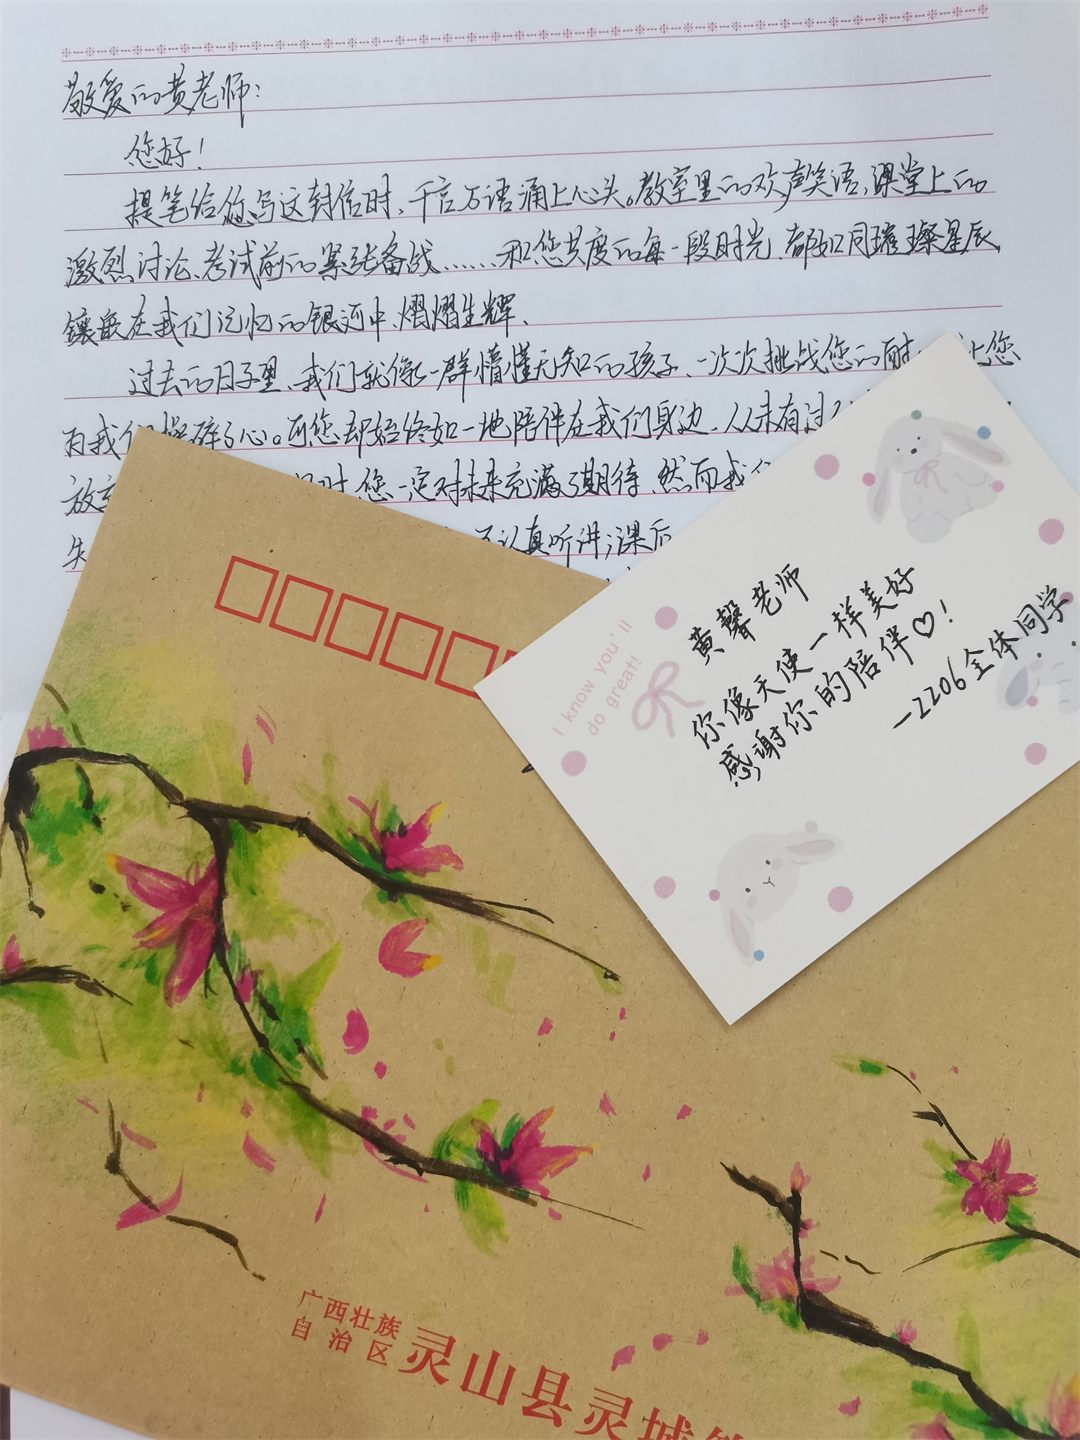 敬爱的黄老师：
您好！
提笔给您写这封信时，千言万语涌上心头。教室里的欢声笑语，课堂上的
激烈讨论、考试前的紧张备战……和您共度的每一段时光，都如同璀璨星辰，
镶嵌在我们记忆的银河中，熠熠生辉。
过去的日子里，我们就像一群懵懂无知的孩子，一次次挑战您的耐 让您
为我们操碎了心。可您却始终如一地陪伴在我们身边，从未有过
放 时，您一定对未来充满了期待，然而我们
失 认真听讲；课后
黄馨老师
你像天使一样美好
感谢你的陪伴♡！
—2206全体同学
I know you'll
do great!
广西壮族
自治区
灵山县灵城